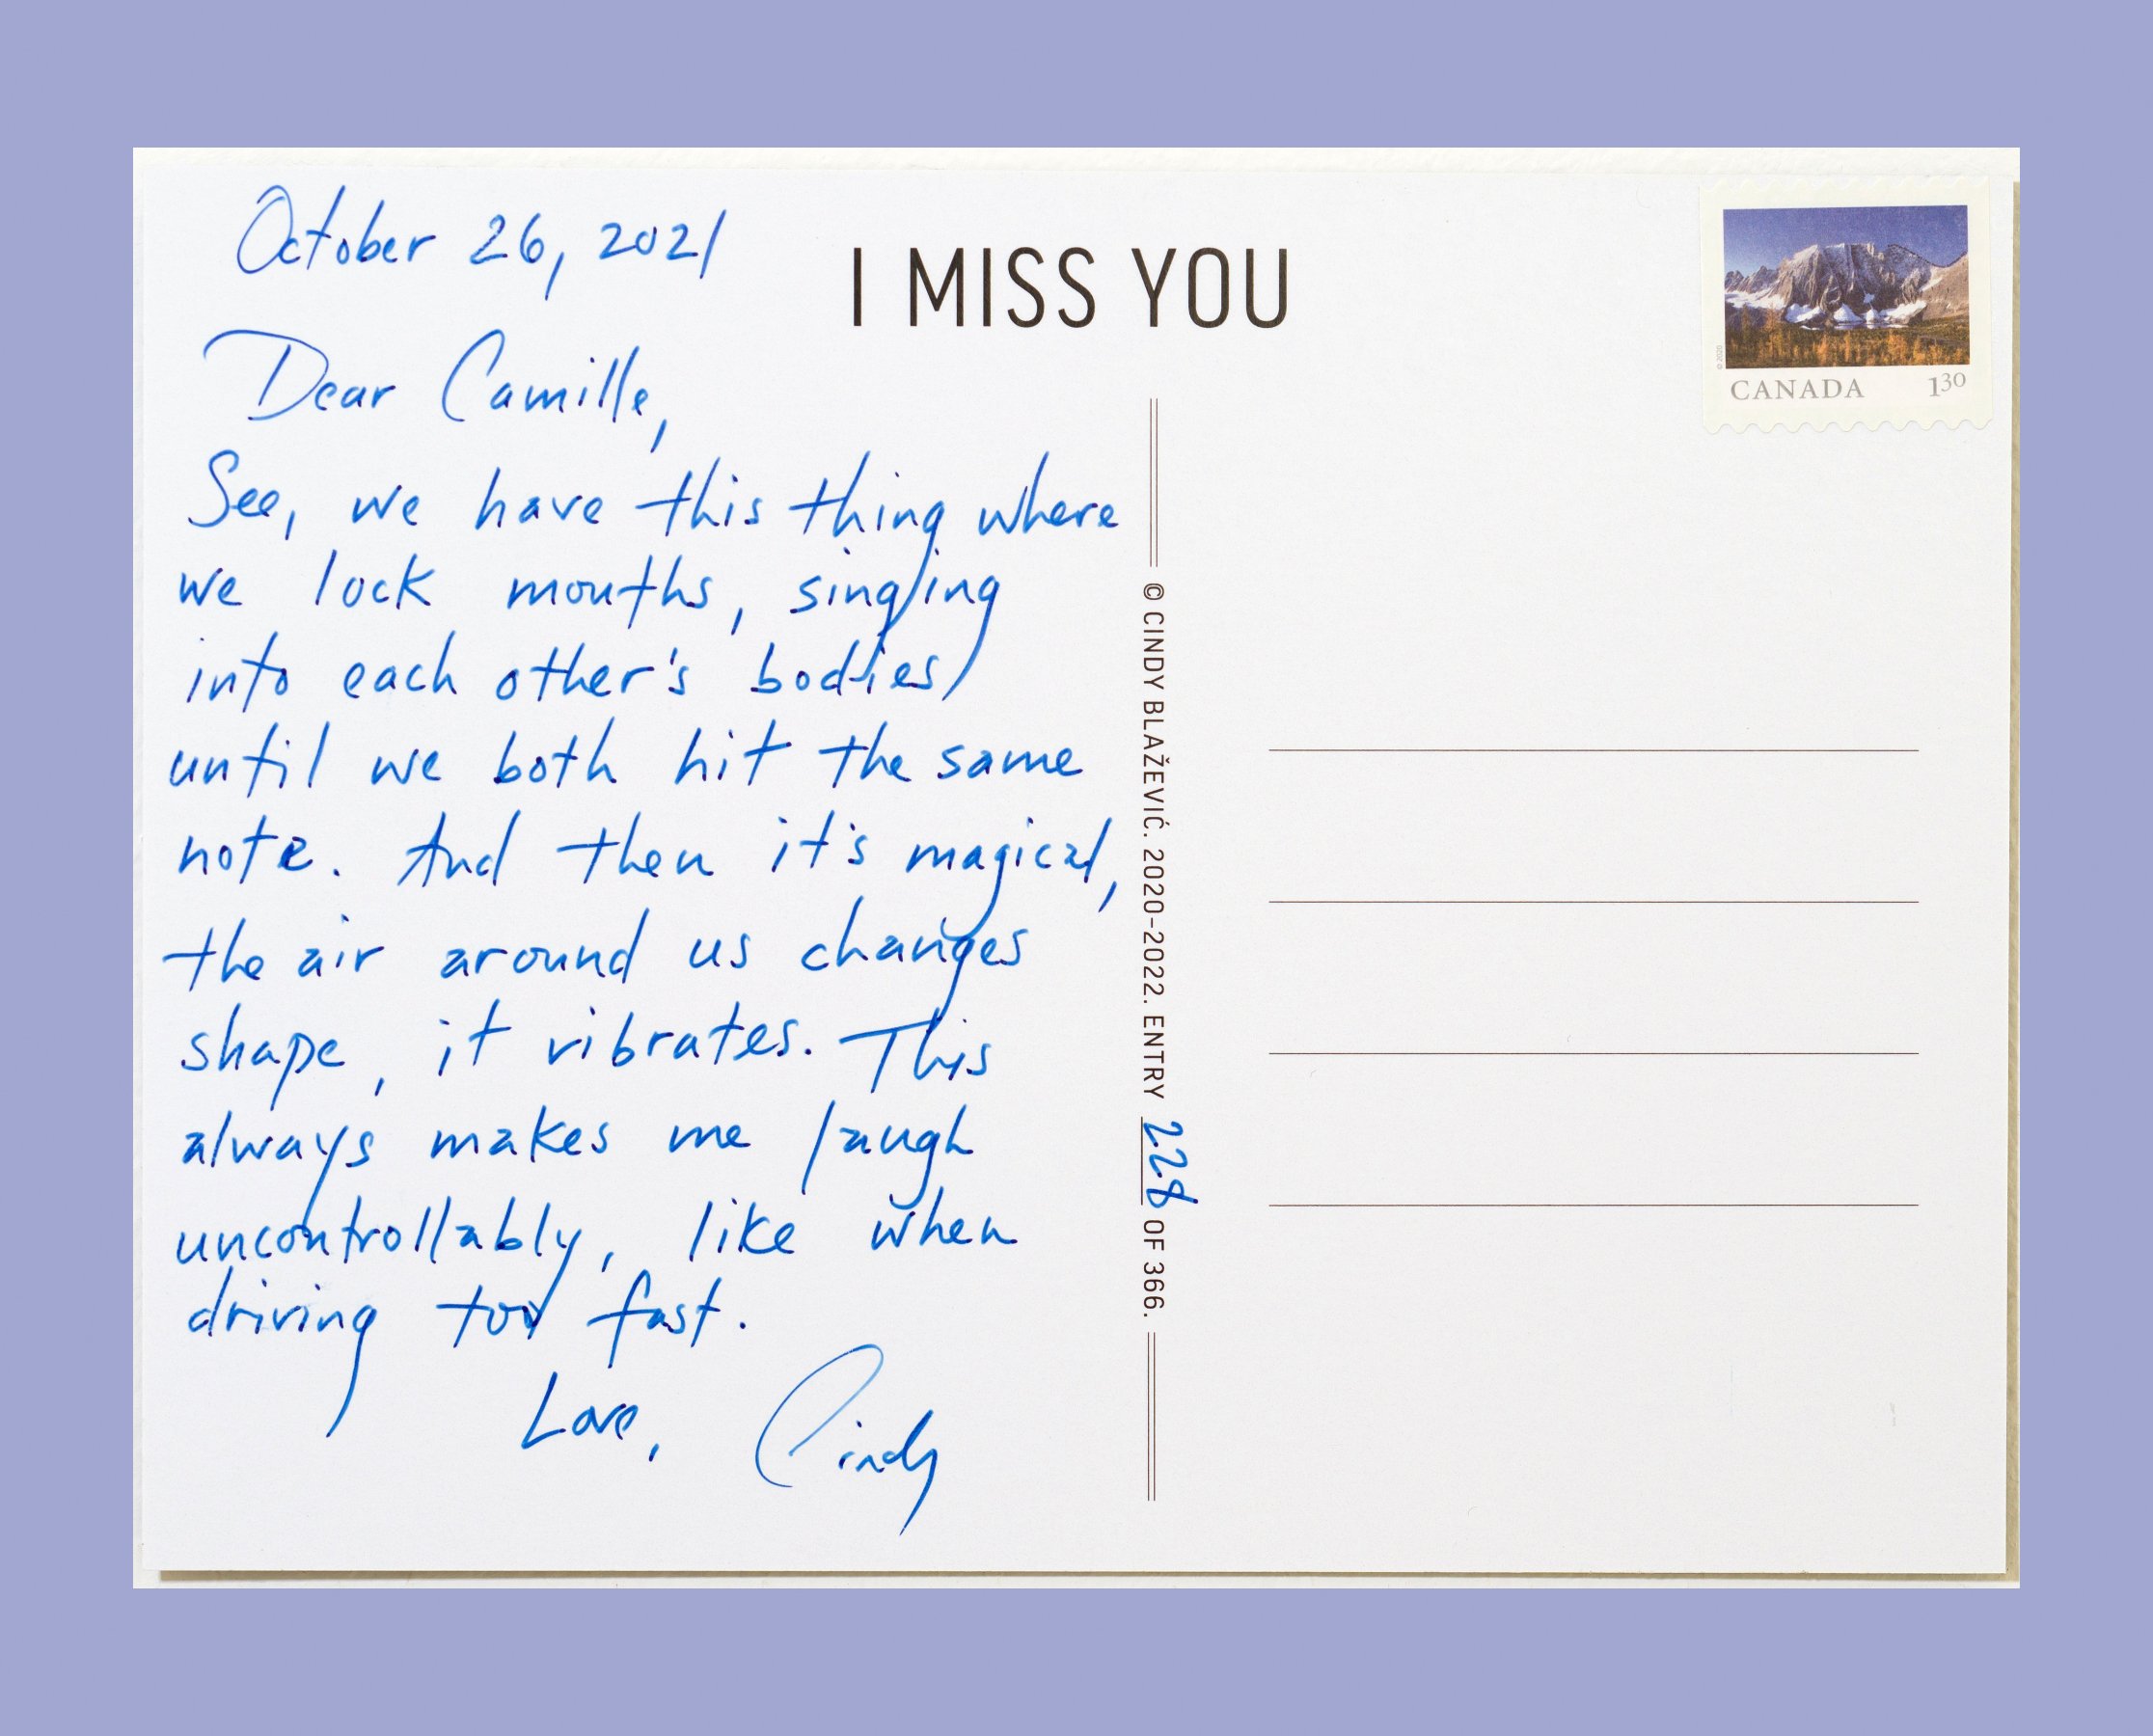 October 26, 2021
I MISS YOU
CANADA 130
Dear Camille,
See, we have this thing where
we lock mouths, singing
into each other's bodies,
until we both hit the same
note. And then it's magical,
the air around us changes
shape, it vibrates. This
always makes me laugh
uncontrollably, like when
driving too fast.
Love, Cindy
© CINDY BLAŽEVIĆ. 2020-2022. ENTRY 228 OF 366.